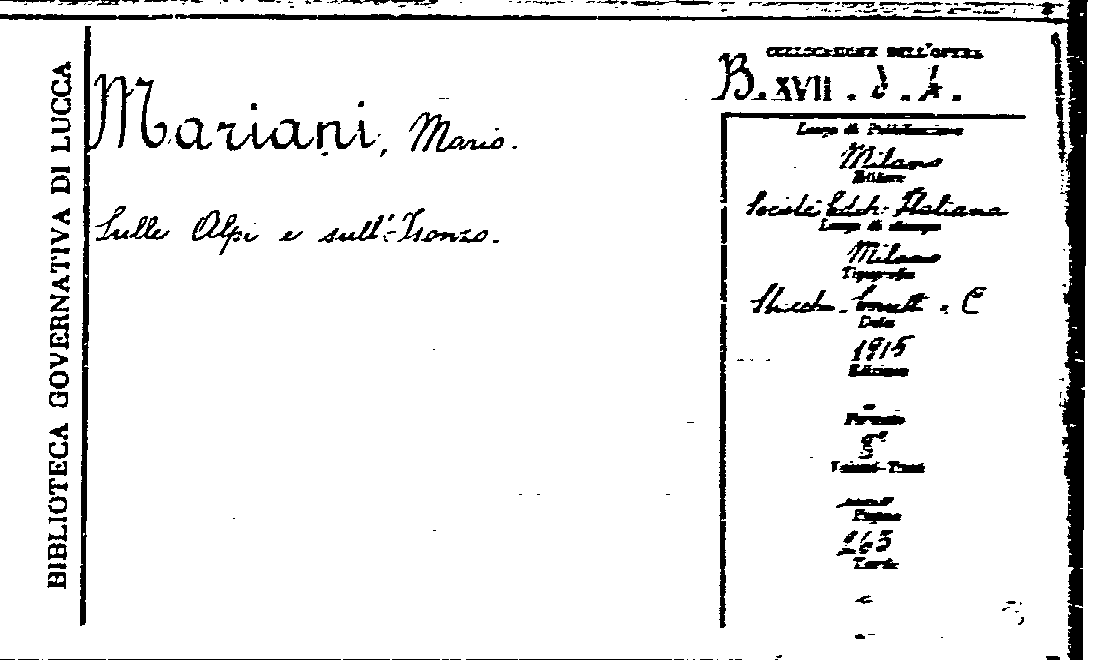 BIBLIOTECA GOVERNATIVA DI LUCCA
Mariani, Mario.
Sulle Alpi e sull'Isonzo.
COLLOCAZIONE DELL'OPERA
B. XVII.
Luogo di Pubblicazione
Milano
Editore
Società Edit. Italiana
Luogo di stampa
Milano
Tipografia
Data
1915
Edizione
-
Formato
8°
Volumi-Tomi
Pagine
263
Tavole